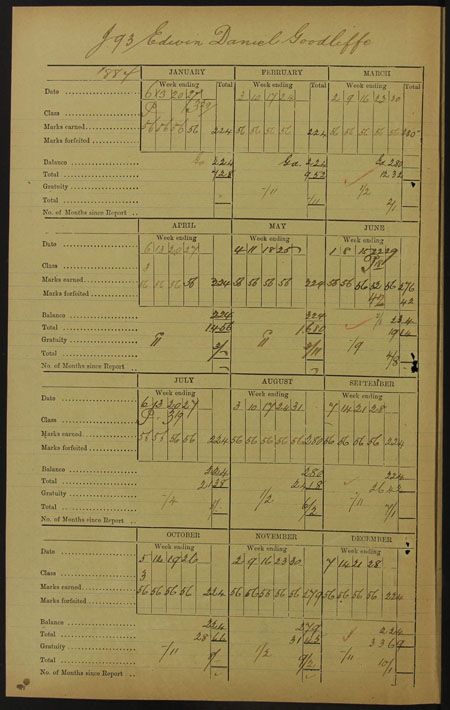 J 93 Edwin Daniel Goodliffe
JANUARY FEBRUARY MARCH
Week ending Total Week ending Total Week ending Total
Date 6 13 20 27 3 10 17 24 2 9 16 23 30
Class
Marks earned 56 56 56 56 224 56 56 56 56 224 56 56 56 56 56 280
Marks forfeited
Balance 224 Gd 224 Gd 280
Total 728 952 1232
Gratuity -/11 1/2
Total -/11 2/1
No. of Months since Report
APRIL MAY JUNE
Week ending Week ending Week ending
Date 6 13 20 27 4 11 18 25 1 8 15 22 29
Class 3
Marks earned 56 56 56 56 224 56 56 56 56 224 56 56 56 52 56 276
Marks forfeited 42 42
Balance 224 224 234
Total 1456 1680 1914
Gratuity -/9
Total 3/- 3/11 4/8
No. of Months since Report
JULY AUGUST SEPTEMBER
Week ending Week ending Week ending
Date 6 13 20 27 3 10 17 24 31 7 14 21 28
Class
Marks earned 56 56 56 56 224 56 56 56 56 56 280 56 56 56 56 224
Marks forfeited
Balance 224 280 224
Total 2138 2418 2642
Gratuity 1/2 -/11
Total 6/2 7/1
No. of Months since Report
OCTOBER NOVEMBER DECEMBER
Week ending Week ending Week ending
Date 5 12 19 26 2 9 16 23 30 7 14 21 28
Class 3
Marks earned 56 56 56 56 224 56 56 56 56 279 56 56 56 56 224
Marks forfeited
Balance 224 279 224
Total 2866 3145 3369
Gratuity -/11 1/2 -/11
Total 8/- 9/2 10/1
No. of Months since Report